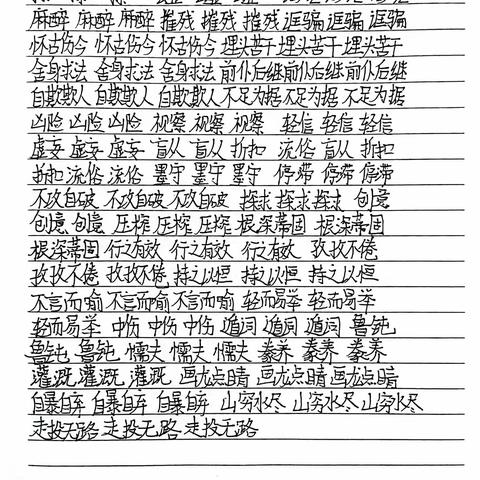 麻醉 麻醉 麻醉 摧残 摧残 摧残 诓骗 诓骗 诓骗
怀古伤今 怀古伤今 怀古伤今 埋头苦干 埋头苦干 埋头苦干
舍身求法 舍身求法 舍身求法 前仆后继 前仆后继 前仆后继
自欺欺人 自欺欺人 自欺欺人 不足为据 不足为据 不足为据
凶险 凶险 凶险 视察 视察 视察 轻信 轻信 轻信
虚妄 虚妄 虚妄 盲从 盲从 折扣 流俗 盲从 折扣
折扣 流俗 流俗 墨守 墨守 墨守 停滞 停滞 停滞
不攻自破 不攻自破 不攻自破 探求 探求 探求 创意
创意 创意 压榨 压榨 压榨 根深蒂固 根深蒂固
根深蒂固 行之有效 行之有效 行之有效 孜孜不倦
孜孜不倦 孜孜不倦 持之以恒 持之以恒 持之以恒
不言而喻 不言而喻 不言而喻 轻而易举 轻而易举
轻而易举 中伤 中伤 中伤 遁词 遁词 遁词 鲁钝
鲁钝 鲁钝 懦夫 懦夫 懦夫 豢养 豢养 豢养
灌溉 灌溉 灌溉 画龙点睛 画龙点睛 画龙点睛
自暴自弃 自暴自弃 自暴自弃 山穷水尽 山穷水尽 山穷水尽
走投无路 走投无路 走投无路